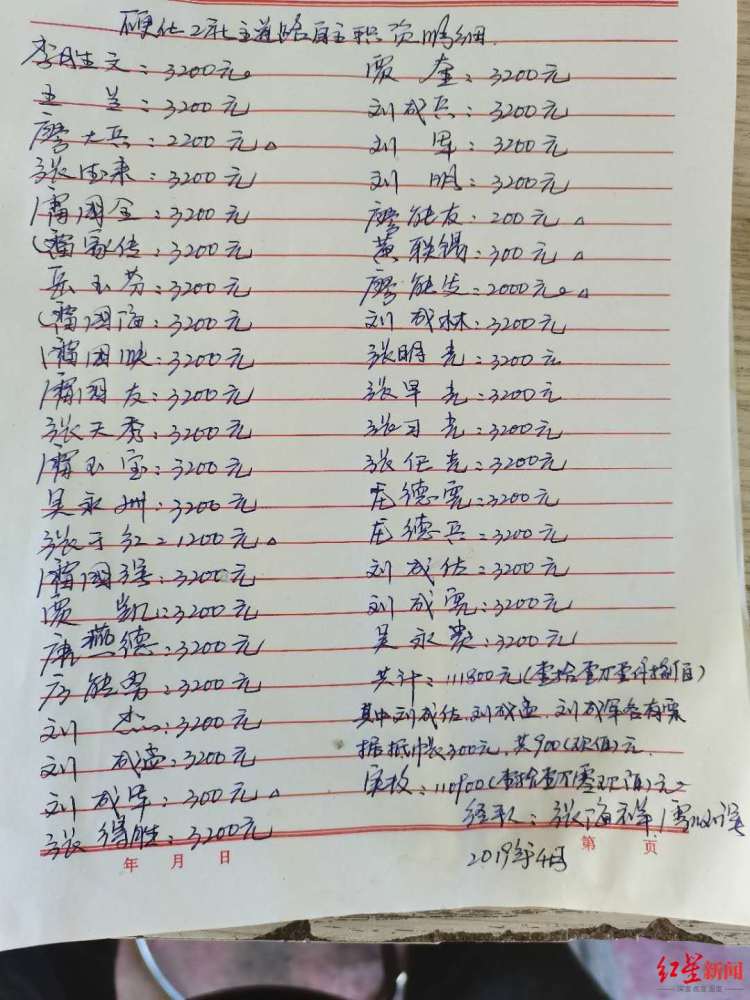 硬化2社主道路自主职资明细
李胜文：3200元。
王 兰：3200元
廖大兵：2200元△
张德来：3200元
雷国全：3200元
雷家传：3200元
岳玉芬：3200元
雷国海：3200元
雷国映：3200元
雷国友：3200元
张天秀：3200元
雷玉宝：3200元
吴永州：3200元
张于红：1200元△
雷国强：3200元
贾 凯：3200元
唐燕德：3200元
能男：3200元
刘 杰：3200元
刘 成孟：3200元
刘成军：300元△
张得胜：3200元
贾 奎：3200元
刘成兵：3200元
刘 军：3200元
刘 明：3200元
廖能友：200元△
黄联锡：300元△
廖能发：2000元。△
刘成林：3200元
张明光：3200元
张早光：3200元
张习光：3200元
张任光：3200元
龙德云：3200元
龙德兵：3200元
刘成佐：3200元
刘成云：3200元
吴永贵：3200元
共计：111800元（壹拾壹万壹仟捌佰）
其中刘成佐、刘成孟、刘成军各有票
据抵帐300元，共900（玖佰）元
实收：110900（壹拾壹万零玖佰）元
经手人：张海祥
2019年4月
年 月 日
第 页
红星新闻
深度 态度 温度